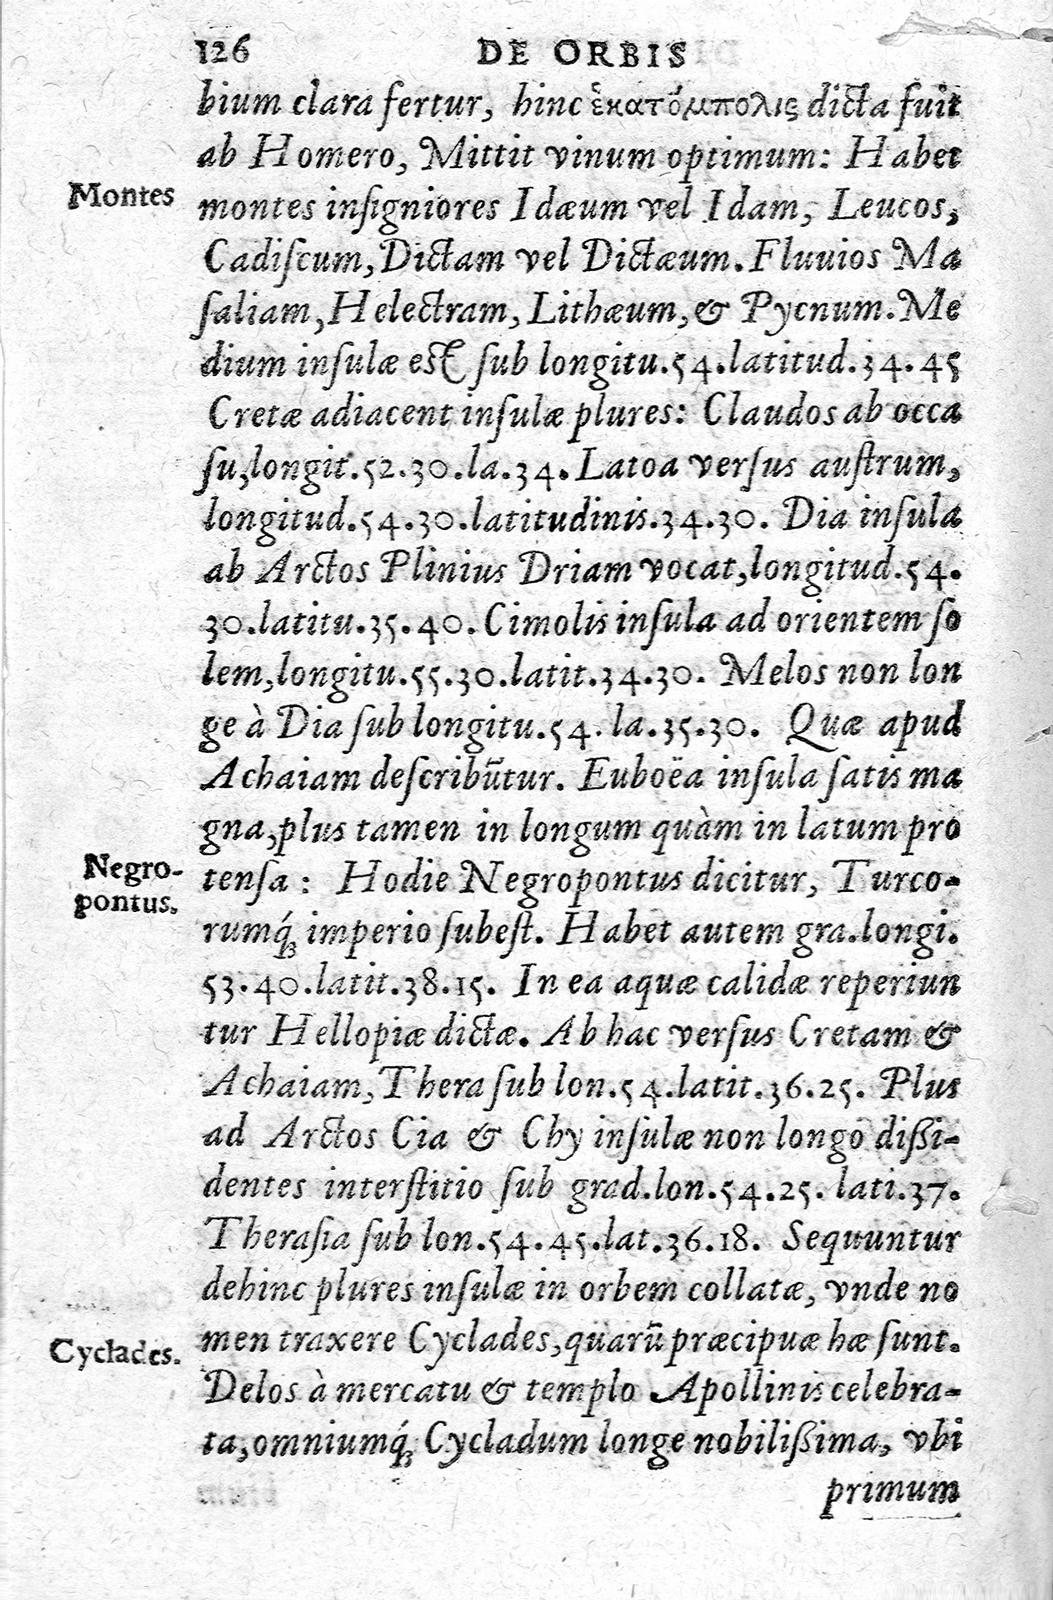 126 DE ORBIS
bium clara fertur, hinc ἑκατόμπολις dicta fuit
ab Homero, Mittit vinum optimum: Habet
Montes
montes inſigniores Idæum vel Idam, Leucos,
Cadiſcum, Dictam vel Dictæum. Fluuios Ma
ſaliam, Helectram, Lithæum, & Pycnum. Me
dium inſulæ eſt ſub longitu.54.latitud.34.45
Cretæ adiacent inſulæ plures: Claudos ab occa
ſu, longit.52.30.la.34. Latoa verſus auſtrum,
longitud.54.30.latitudinis.34.30. Dia inſula
ab Arctos Plinius Driam vocat, longitud.54.
30.latitu.35.40. Cimolis inſula ad orientem ſo
lem, longitu.55.30.latit.34.30. Melos non lon
ge à Dia ſub longitu.54. la.35.30. Quæ apud
Achaiam deſcribũtur. Euboëa inſula ſatis ma
gna, plus tamen in longum quàm in latum pro
Negro-
pontus.
tenſa: Hodie Negropontus dicitur, Turco-
rumq́; imperio ſubeſt. Habet autem gra.longi.
53.40.latit.38.15. In ea aquæ calidæ reperiun
tur Hellopiæ dictæ. Ab hac verſus Cretam &
Achaiam, Thera ſub lon.54.latit.36.25. Plus
ad Arctos Cia & Chy inſulæ non longo diſsi-
dentes interſtitio ſub grad.lon.54.25. lati.37.
Theraſia ſub lon.54.45.lat.36.18. Sequuntur
dehinc plures inſulæ in orbem collatæ, vnde no
Cyclades.
men traxere Cyclades, quarũ præcipuæ hæ ſunt.
Delos à mercatu & templo Apollinis celebra-
ta, omniumq́; Cycladum longe nobiliſsima, vbi
primum